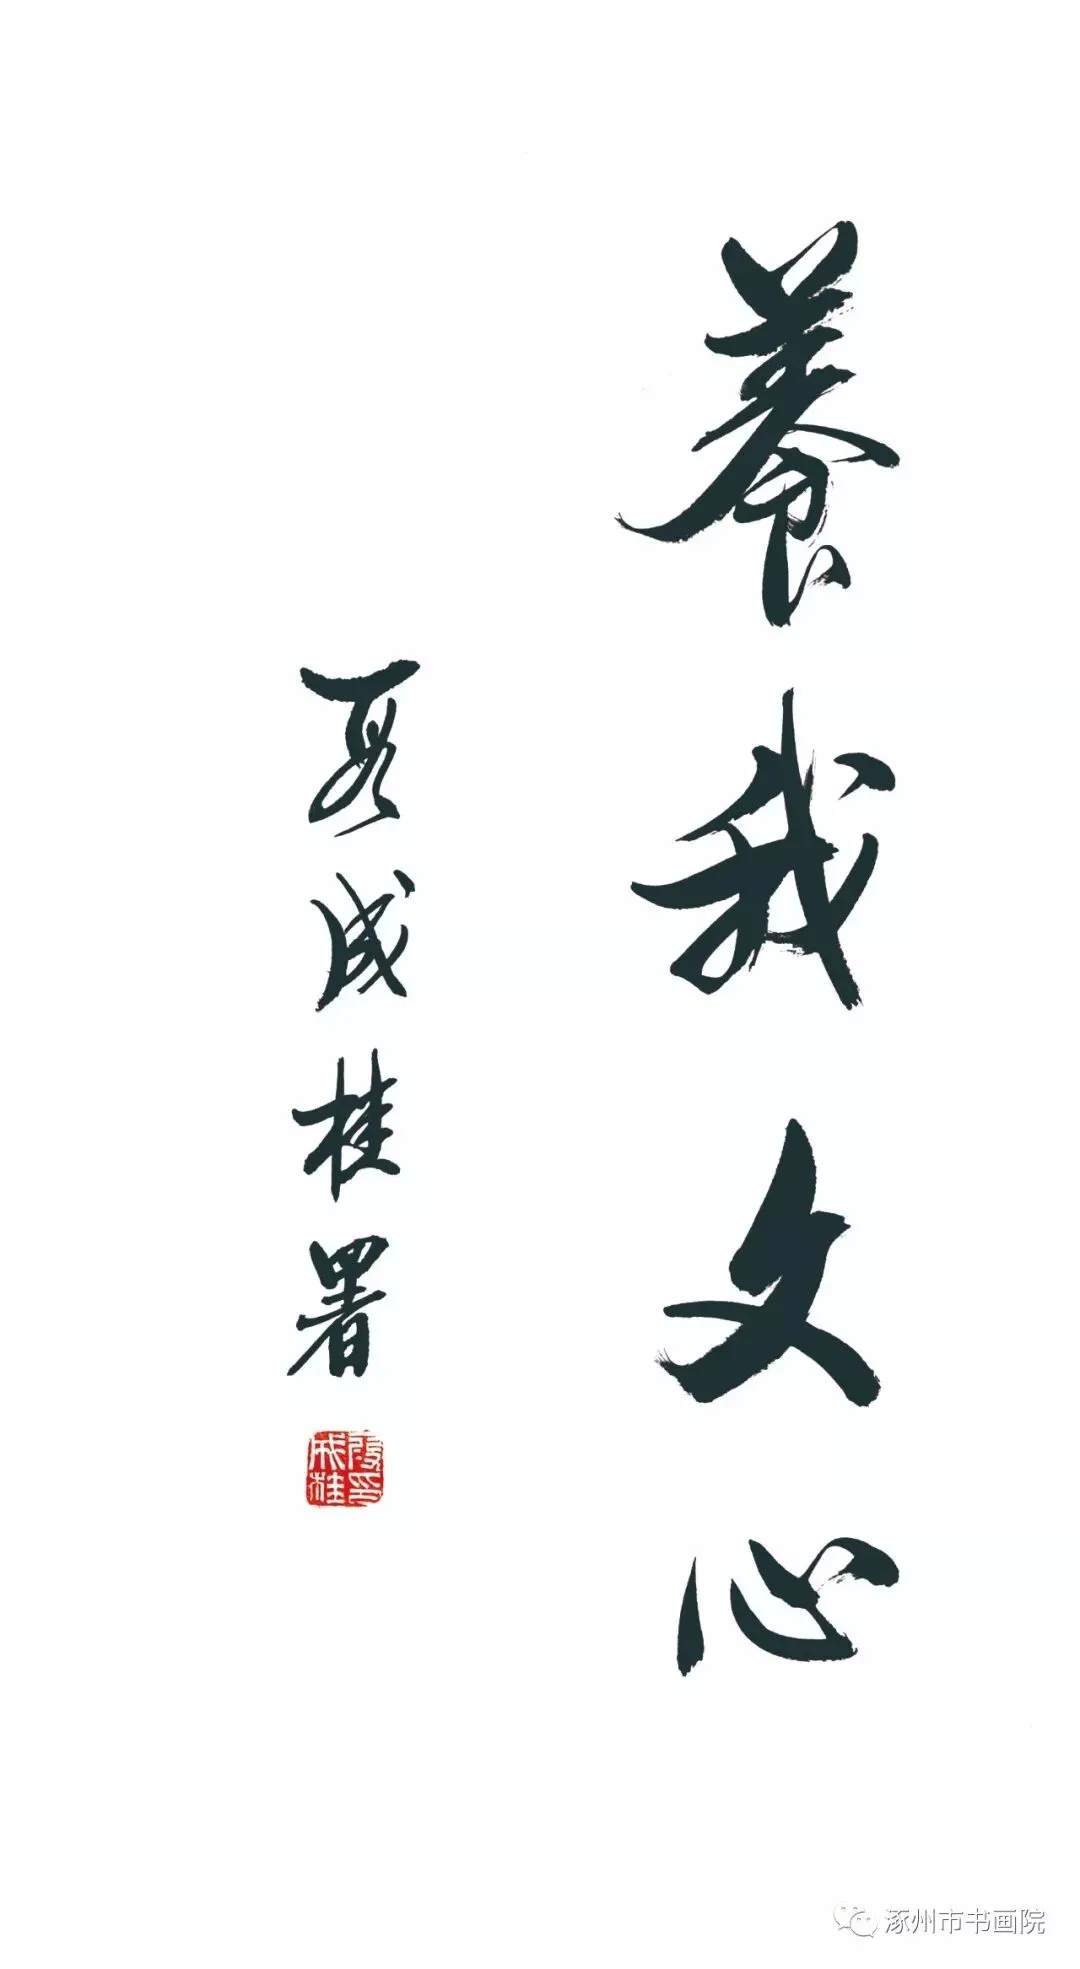 養我文心
段成桂署
段印
成桂
涿州市书画院